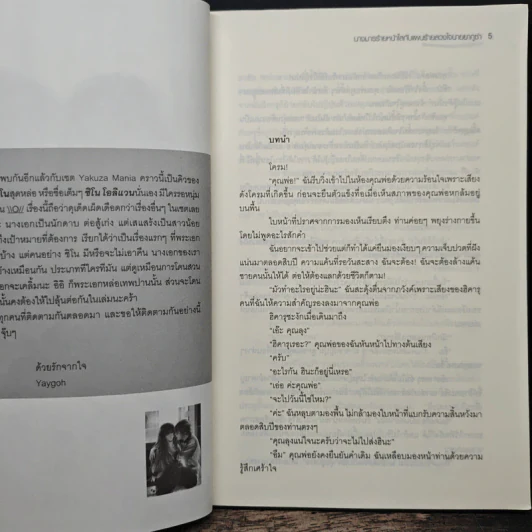 พบกันอีกแล้วกับเซต Yakuza Mania คราวนี้เป็นคิวของ
โนสุดหล่อ หรือชื่อเต็มๆ ชิโน โอลิแวนนั่นเอง มีใครรอหนุ่ม
น \\O// เรื่องนี้ถือว่าดุเด็ดเผ็ดเดือดกว่าเรื่องอื่นๆ ในเซตเลย
ะ นางเอกเป็นนักดาบ ต่อสู้เก่ง แต่เสแสร้งเป็นสาวน้อย
ถึงเป้าหมายที่ต้องการ เรียกได้ว่าเป็นเรื่องแรกๆ ที่พระเอก
บ้าง แต่คนอย่าง ชิโน มีหรือจะไม่เอาคืน นางเอกของเรา
ร้างเหมือนกัน ประเภทที่ใครดีมัน แต่ดูเหมือนการโดนสวน
อกจะเคลิ้มนะ อิอิ ก็พระเอกหล่อเทพปานนั้น ส่วนจะโดน
นั้นคงต้องให้ไปลุ้นต่อกันในเล่มนะคร้า
ทุกคนที่ติดตามกันตลอดมา และขอให้ติดตามกันอย่างนี้
จุ๊บๆ
ด้วยรักจากใจ
Yaygoh
5
บทนำ
โครม!
“คุณพ่อ!” ฉันรีบวิ่งเข้าไปในห้องคุณพ่อด้วยความร้อนใจเพราะเสียง
ดังโครมที่เกิดขึ้น ก่อนจะยืนตัวแข็งทื่อเมื่อเห็นสภาพของคุณพ่อหกล้มอยู่
บนพื้น
ใบหน้าที่ปราศจากการมองเห็นเรียบตึง ท่านค่อยๆ พยุงร่างกายขึ้น
โดยไม่พูดอะไรสักคำ
ฉันอยากจะเข้าไปช่วยแต่ก็ทำได้แค่ยืนมองเงียบๆ ความเจ็บปวดที่ฝัง
แน่นมาตลอดสิบปี ความแค้นที่รอวันสะสาง ฉันจะต้อง! ฉันจะต้องล้างแค้น
ชายคนนั้นให้ได้ ต่อให้ต้องแลกด้วยชีวิตก็ตาม!
“มัวทำอะไรอยู่น่ะฮินะ” ฉันสะดุ้งตื่นจากภวังค์เพราะเสียงของฮิคารุ
คนที่ฉันให้ความสำคัญรองลงมาจากคุณพ่อ
ฮิคารุชะงักเมื่อเดินมาถึง
“เอ๊ะ คุณลุง”
“ฮิคารุเรอะ?” คุณพ่อของฉันหันหน้าไปทางต้นเสียง
“ครับ”
“อะไรกัน ฮินะก็อยู่นี่เหรอ”
“เอ่อ ค่ะคุณพ่อ”
“จะไปวันนี้ใช่ไหม?”
“ค่ะ” ฉันหลุบตามองพื้น ไม่กล้ามองใบหน้าที่แบกรับความสิ้นหวังมา
ตลอดสิบปีของท่านตรงๆ
“คุณลุงแน่ใจนะครับว่าจะไม่ไปส่งฮินะ”
“อืม” คุณพ่อยังคงยืนยันคำเดิม ฉันเหลือบมองหน้าท่านด้วยความ
รู้สึกเศร้าใจ